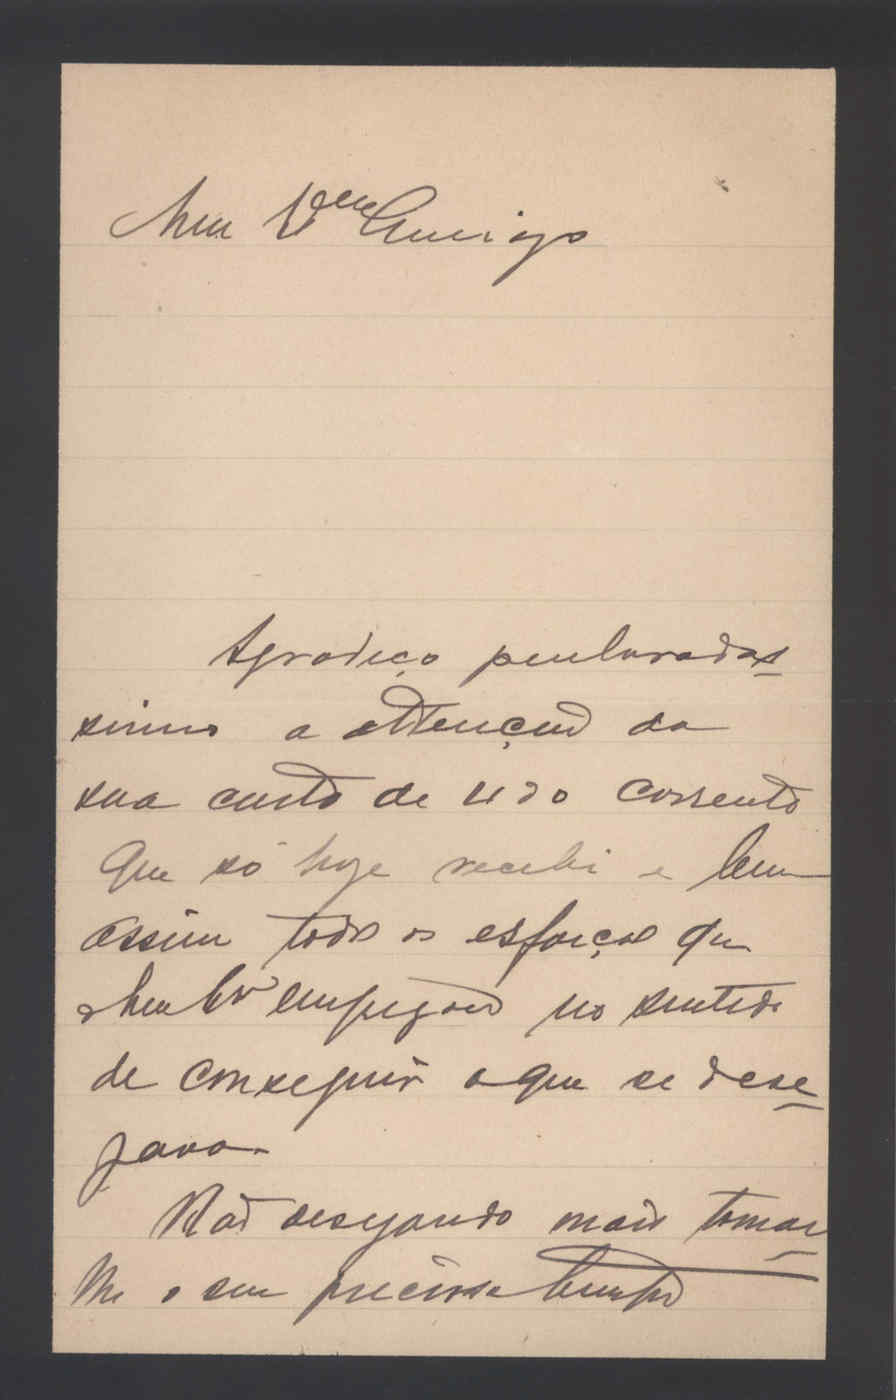 Meu Vem Amigo
Agradeço penhoradis-
simo a attenção da
sua carta de corrente
que só hoje recebi e bem
assim todos os esforços que
empregou no sentido
de conseguir o que se dese-
java.
Não desejando mais tomar-
lhe o seu precioso tempo